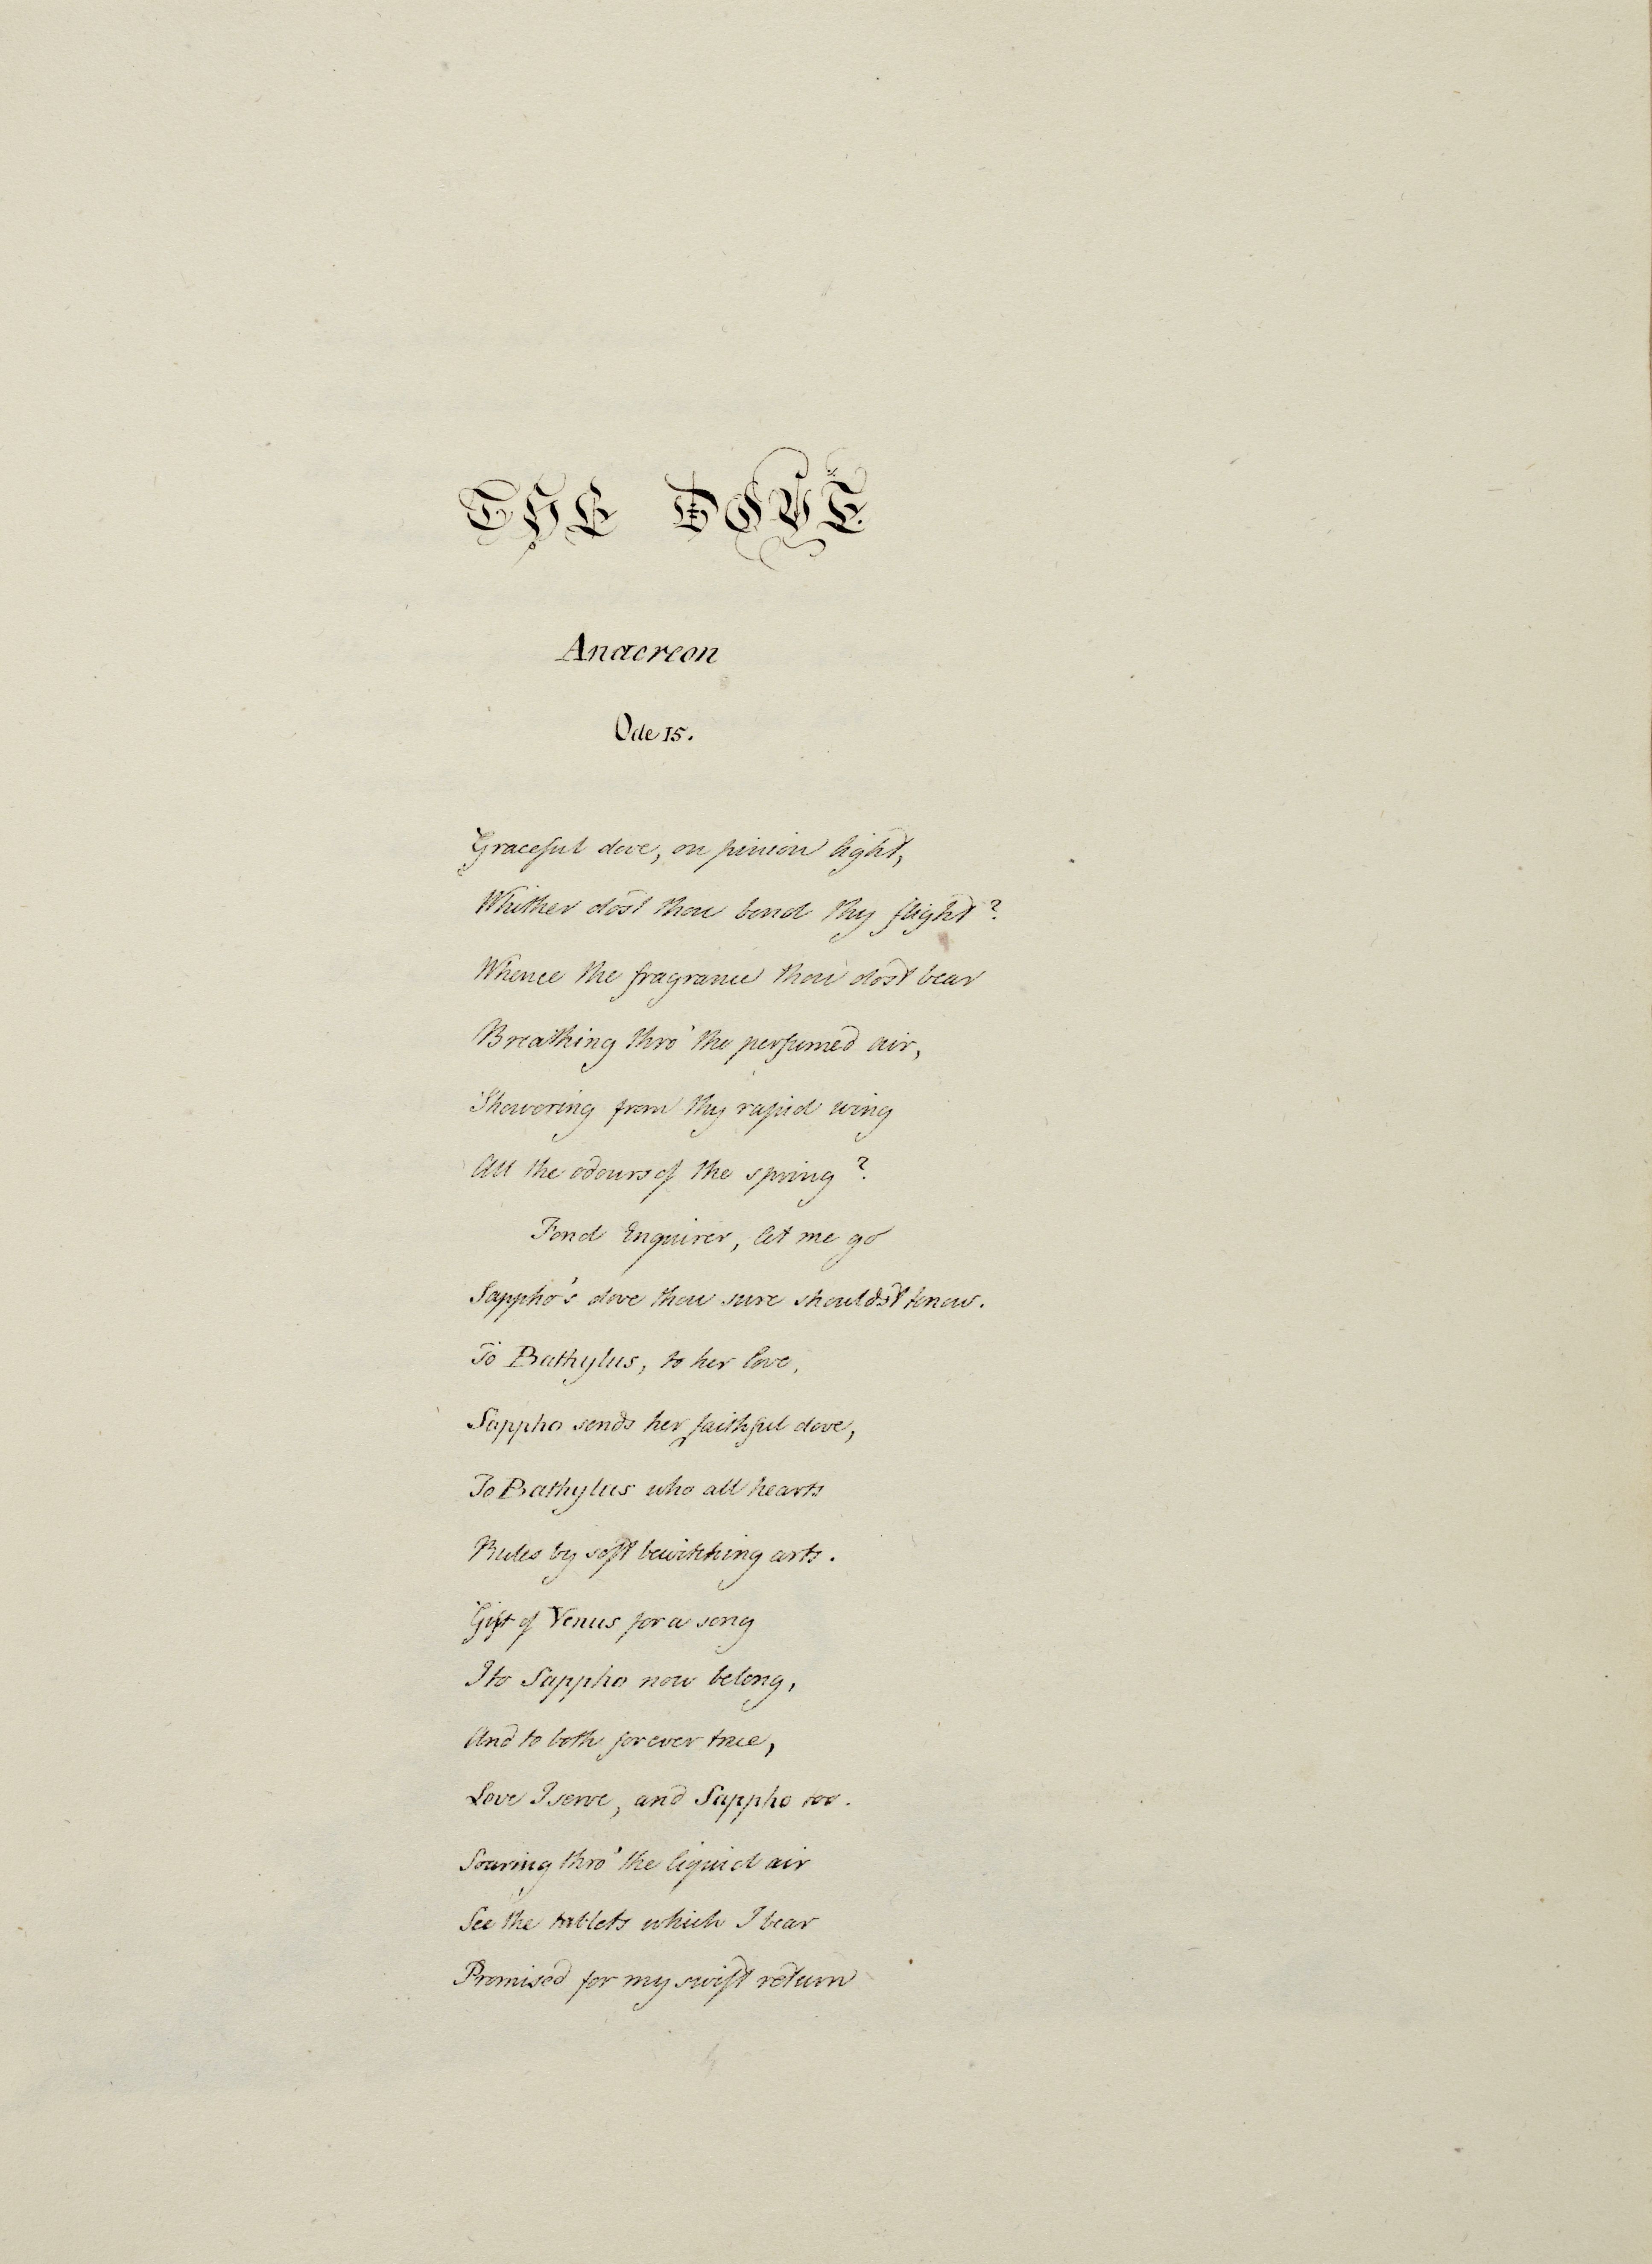 THE DOVE
Anacreon
Ode 15.
Graceful dove, on pinion light,
Whither dost thou bend thy flight?
Whence the fragrance thou dost bear
Breathing thro' the perfumed air,
Showering from thy rapid wing
All the odours of the spring?
Fond Enquirer, let me go
Sappho's dove thou sure shouldst know.
To Bathylus, to her love,
Sappho sends her faithful dove,
To Bathylus who all hearts
Rules by soft bewitching arts.
Gift of Venus for a song
I to Sappho now belong,
And to both forever true,
Love I serve, and Sappho too.
Soaring thro' the liquid air
See the tablets which I bear
Promised for my swift return